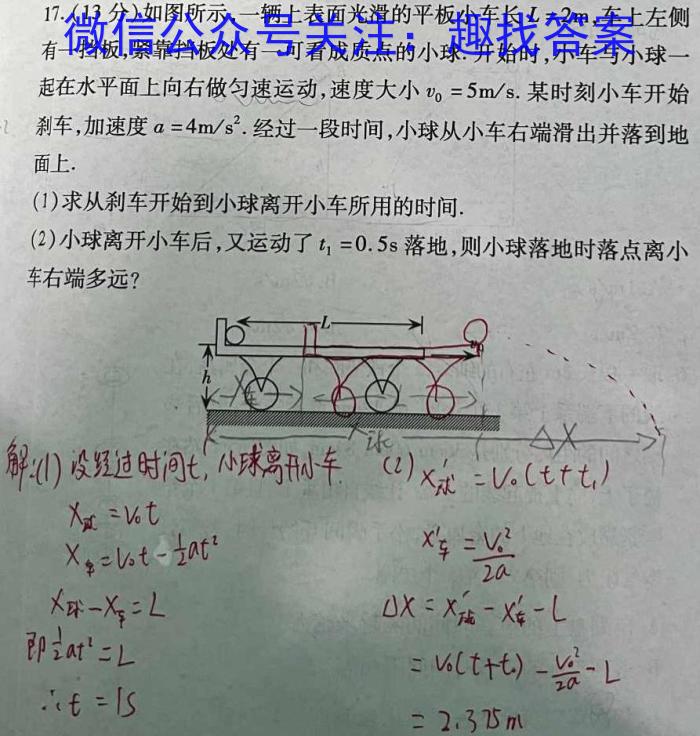 17.(13分)如图所示,一辆上表面光滑的平板小车长L=2m,车上左侧
微信公众号关注:趣找答案
有一挡板,紧靠挡板处有一可看成质点的小球.开始时,小车与小球一
起在水平面上向右做匀速运动,速度大小v₀=5m/s.某时刻小车开始
刹车,加速度a=4m/s².经过一段时间,小球从小车右端滑出并落到地
面上.
(1)求从刹车开始到小球离开小车所用的时间.
(2)小球离开小车后,又运动了t₁=0.5s落地,则小球落地时落点离小
车右端多远?
L
v₀
h
X车
L
X球
ΔX
解:(1)设经过时间t,小球离开小车.
X球=V₀t
X车=V₀t-½at²
X球-X车=L
即½at²=L
∴t=1s
(2)X球'=V₀(t+t₁)
X'车=V₀²/2a
ΔX=X'球-X'车-L
=V₀(t+t₀)-V₀²/2a-L
=2.375m